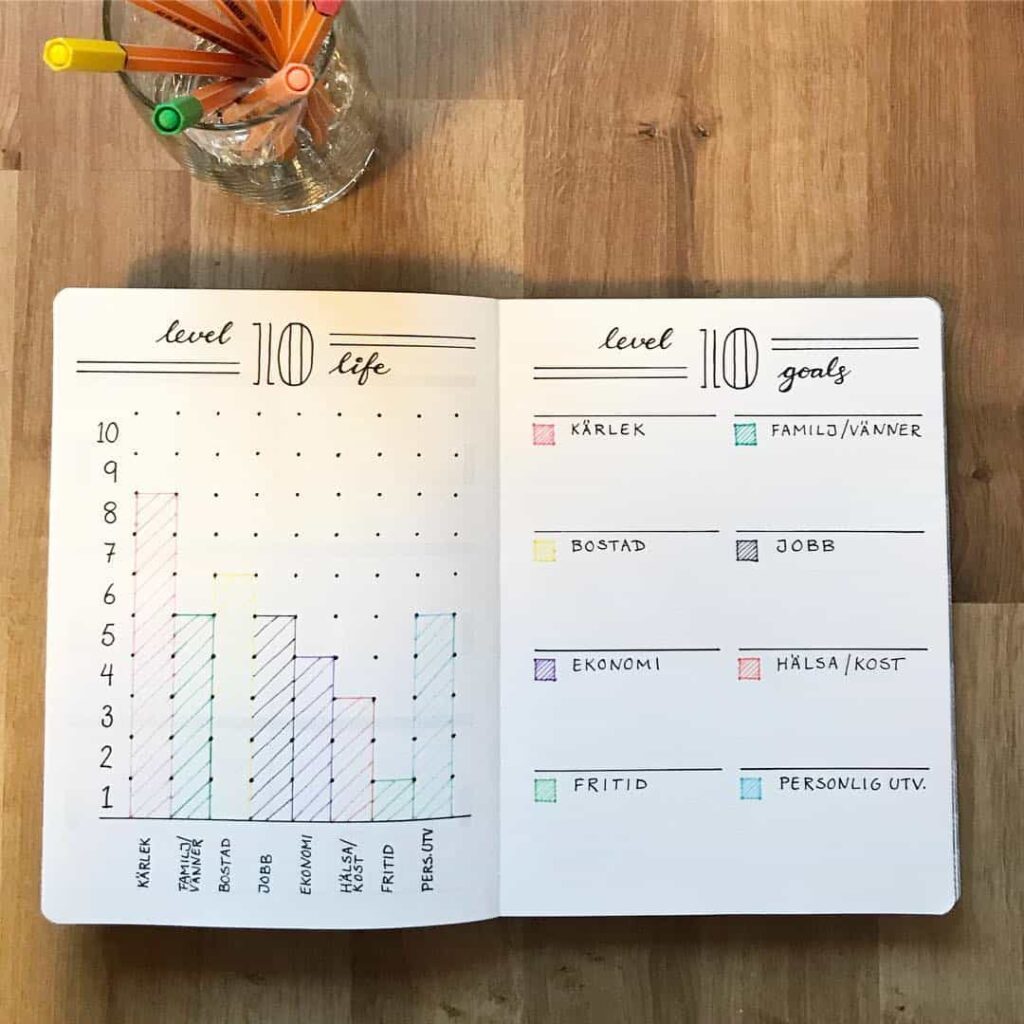 level 10 life
10
9
8
7
6
5
4
3
2
1
KÄRLEK
FAMILJ/
VÄNNER
BOSTAD
JOBB
EKONOMI
HÄLSA/
KOST
FRITID
PERS.UTV
level 10 goals
KÄRLEK
FAMILJ/VÄNNER
BOSTAD
JOBB
EKONOMI
HÄLSA/KOST
FRITID
PERSONLIG UTV.